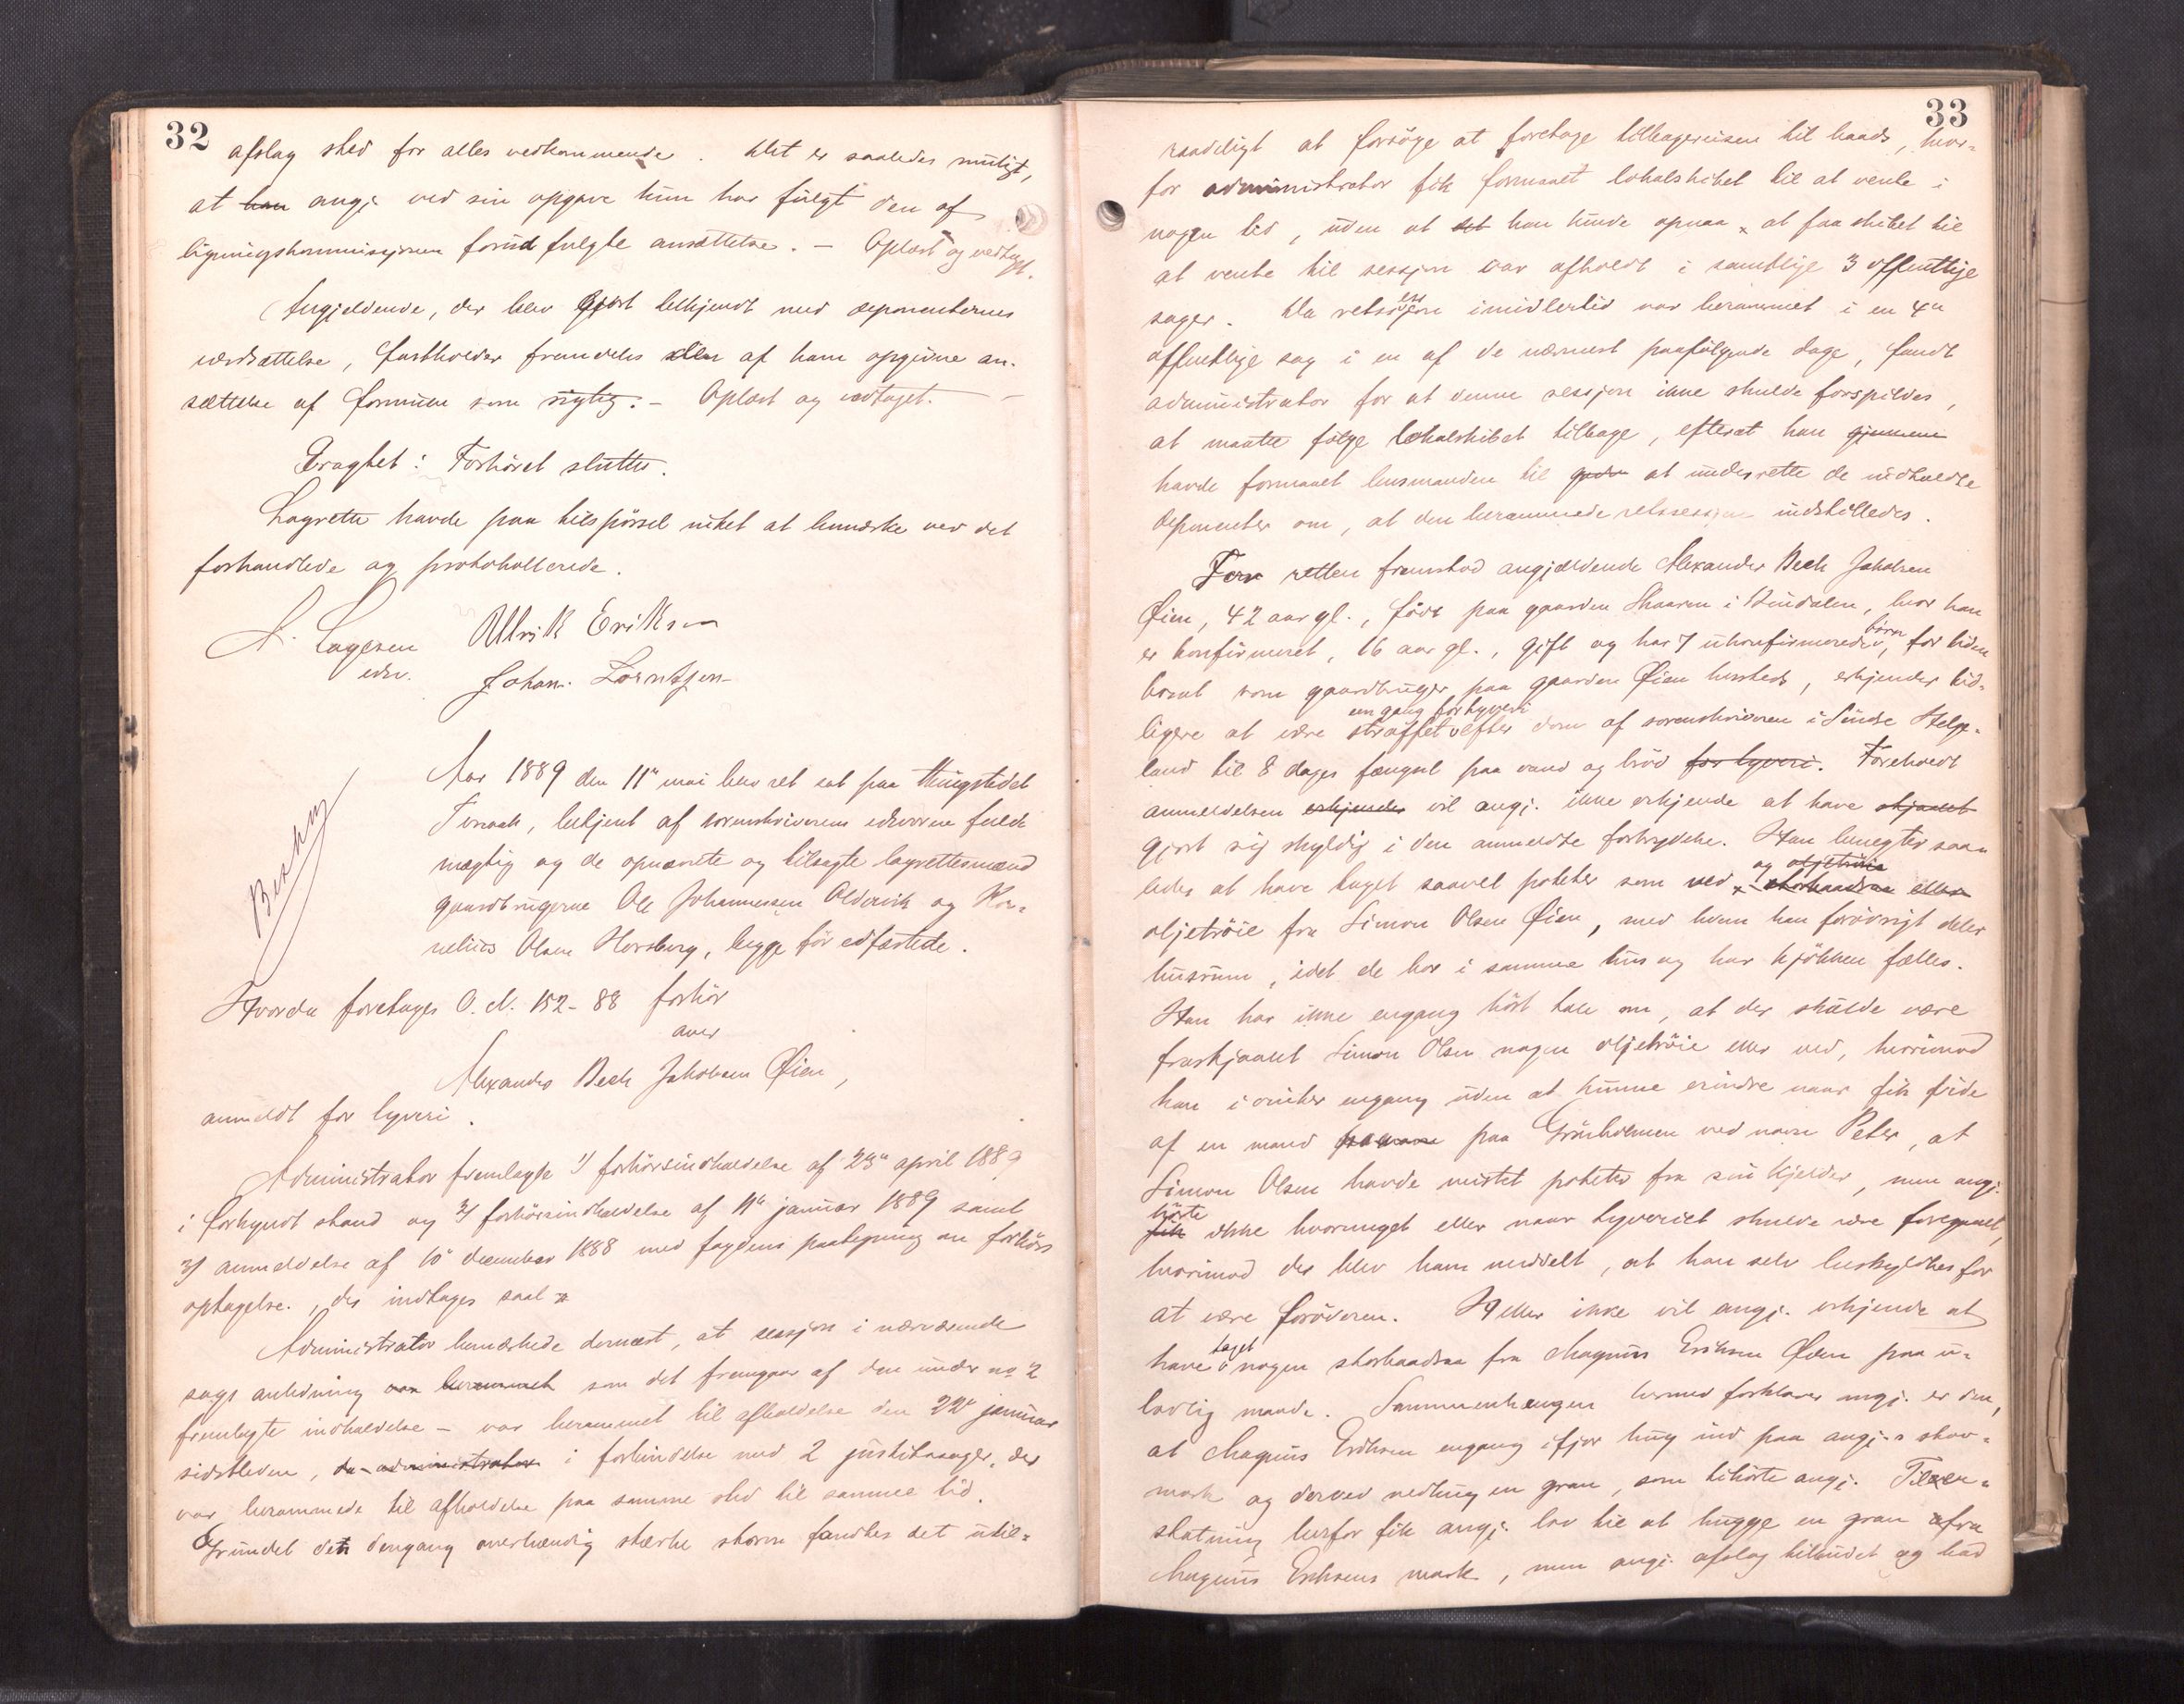 32
afslag sted for alles vedkommende. Det er saaledes muligt,
at han angj. ved sin opgave kun har fulgt den af
ligningskommissjonen forud fulgte ansættelse. - Oplæst og vedtaget.
Angjeldende, der blev gjort bekjendt med deponenternes
værdsættelse, fastholder fremdeles den af ham opgivne an-
sættelse af formuen som rigtig. - Oplæst og vedtaget. -
Eragtet: Forhöret sluttes.
Lagrette havde paa tilspörsel intet at bemærke ved det
forhandlede og protokollerede.
A. Lagesen Ullrik Eriksen
edsv. Johan Lorntzen
Aar 1889 den 11te mai blev ret sat paa thingstedet
Terraak, betjent af sorenskriverens edsvorne fuld-
mægtig og de opnævnte og tilsagte lagrettesmænd
gaardbrugerne Ole Johannessen Aldervik og Kor-
nelius Olsen Horsberg, begge för edfæstede.
Hvorda foretages O. N. 152-88 forhör
over
Alexander Beck Jakobsen Øien,
anmeldt for tyveri.
Administrator fremlagte 1) forhörsindkaldelse af 23de april 1889
i forkyndt stand og 2) forhörsindkaldelse af 11te januar 1889 samt
3) anmeldelse af 10de december 1888 med fogdens paategning om forhörs
optagelse., der indtages saal
Administrator bemærkede dernæst, at sessjon i nærværende
sags anledning var berammet som det fremgaar af den under no 2
fremlagte indkaldelse - var berammet til afholdelse den 22de januar
sidstleden, da administrator i forbindelse med 2 justitssager, der
var berammede til afholdelse paa samme sted til samme tid.
Grundet den dengang overhændig stærke storm fandtes det util-
33
raadeligt at forsöge at foretage tilbagereisen til lands, hvor-
for administrator fik formaaet lokalskibet til at vente i
nogen tid, uden at det han kunde opnaa at faa skibet til
at vente til sessjon var afholdt i samtlige 3 offentlige
sager. Da retssessjon imidlertid var berammet i en 4de
offentlige sag i en af de nærmest paafölgende dage, fandt
administrator for at denne sessjon ikke skulde forspildes,
at maatte fölge lokalskibet tilbage, efterat han gjennem
havde formaaet lensmanden til at underrette de indkaldte
deponenter om, at den berammede retssessjon indstilledes.
For retten fremstod angjældende Alexander Beck Jakobsen
Øien, 42 aar gl., födt paa gaarden Skaaren i Bindalen, hvor han
er konfirmeret, 16 aar gl., gift og har 7 ukonfirmerede börn, for tiden
bosat som gaardbruger paa gaarden Øien hersteds, erkjender tid-
en gang for tyveri
ligere at være straffet efter dom af sorenskriveren i Söndre Helge-
land til 8 dages fængsel paa vand og bröd for tyveri. Foreholdt
anmeldelsen erkjender vil angj. ikke erkjende at have stjaalet
gjort sig skyldig i den anmeldte forbrydelse. Han benegter saa-
og oljetröie
ledes at have taget saavel poteter som ved storbaadsaa eller
oljetröie fra Simon Olsen Øien, med hvem han forövrigt deler
husrum, idet de bor i samme hus og har kjökken fælles.
Han har ikke engang hört tale om, at der skulde være
frastjaalet Simon Olsen nogen oljetröie eller ved, hvorimod
han i vinter engang uden at kunne erindre naar fik vide
af en mand paa Grönholmen ved navn Peter, at
Simon Olsen havde mistet poteter fra sin kjelder, men angj.
hörte
fik ikke hvormeget eller naar tyveriet skulde være foregaaet,
hvorimod der blev ham meddelt, at han selv beskyldtes for
at være foröveren. Heller ikke vil angj. erkjende at
taget
have nogen storbaadsaa fra Magnus Eriksen Øien paa u-
lovlig maade. Sammenhængen hermed forklarer angj. er den,
at Magnus Eriksen engang ifjor hug ind paa angj.s skov-
mark og derved nedhug en gran, som tilhörte angj. Til er-
statning herfor fik angj. lov til at hugge en gran fra
Magnus Eriksens mark, men angj. afslog tilbudet og bad